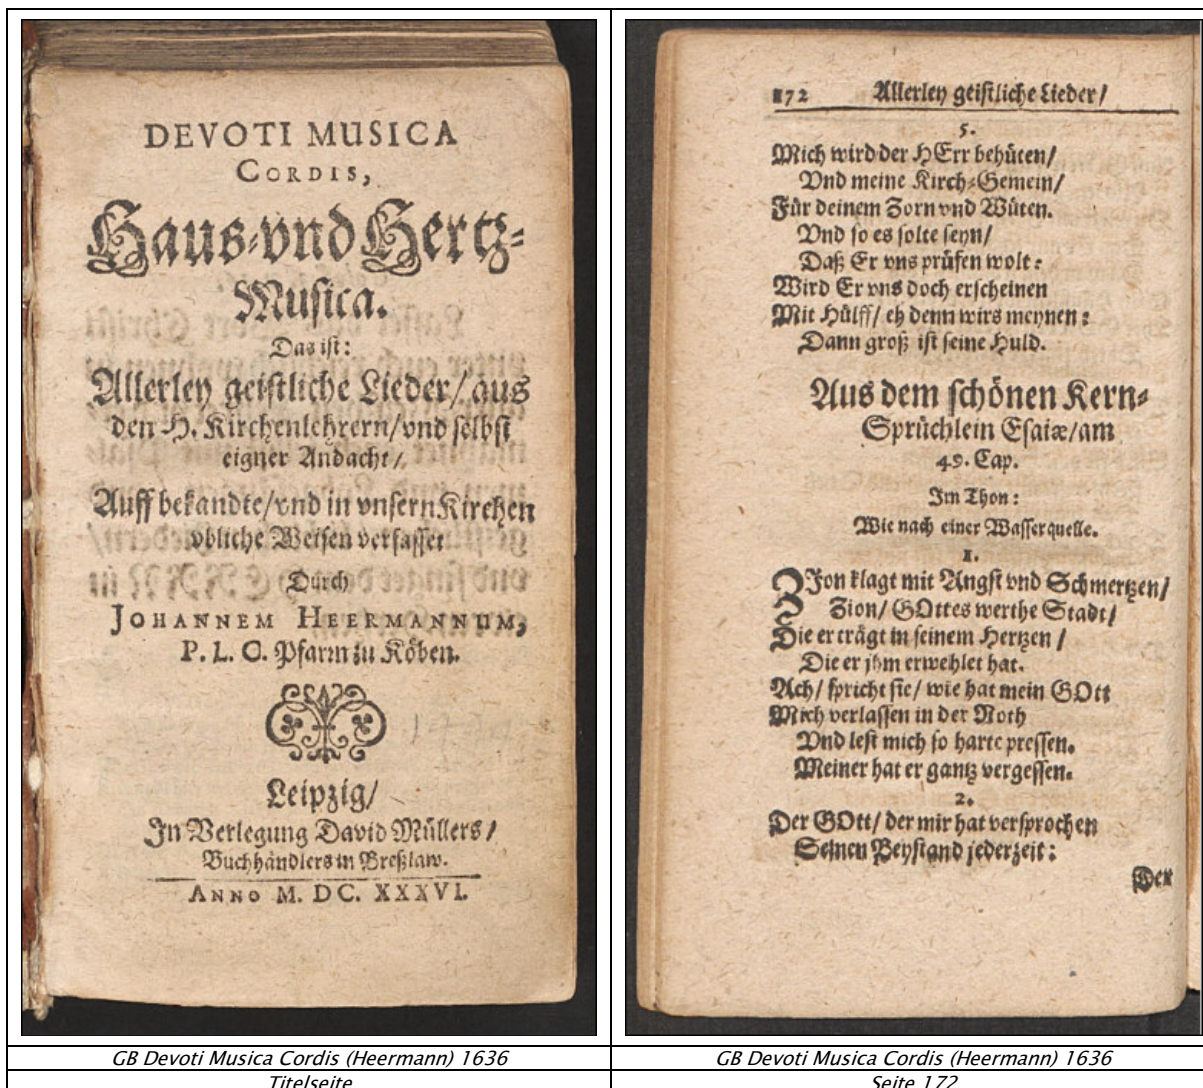 DEVOTI MUSICA
CORDIS,
Haus-vnd Hertz-
Musica.
Das ist:
Allerley geistliche Lieder/aus
den H. Kirchenlehrern/vnd selbst
eigner Andacht/
Auff bekandte/vnd in vnsern Kirchen
vbliche Weisen verfasset
Durch
JOHANNEM HEERMANNUM,
P. L. C. Pfarrn zu Köben.
Leipzig/
In Verlegung David Müllers/
Buchhändlers in Breßlaw.
ANNO M. DC. XXXVI.
GB Devoti Musica Cordis (Heermann) 1636
Titelseite
172 Allerley geistliche Lieder/
5.
Mich wird der HErr behüten/
Vnd meine Kirch-Gemein/
Für deinem Zorn vnd Wüten.
Vnd so es solte seyn/
Daß Er vns prüfen wolt:
Wird Er vns doch erscheinen
Mit Hülff/ eh denn wirs meynen:
Dann groß ist seine Huld.
Aus dem schönen Kern-
Sprüchlein Esaiæ/am
49. Cap.
Im Thon:
Wie nach einer Wasserquelle.
1.
ZIon klagt mit Angst vnd Schmertzen/
Zion/ GOttes werthe Stadt/
Die er trägt in seinem Hertzen/
Die er jhm erwehlet hat.
Ach/ spricht sie/ wie hat mein GOtt
Mich verlassen in der Noth
Vnd lest mich so harte pressen.
Meiner hat er gantz vergessen.
2.
Der GOtt/ der mir hat versprochen
Seinen Beystand jederzeit:
Der
GB Devoti Musica Cordis (Heermann) 1636
Seite 172